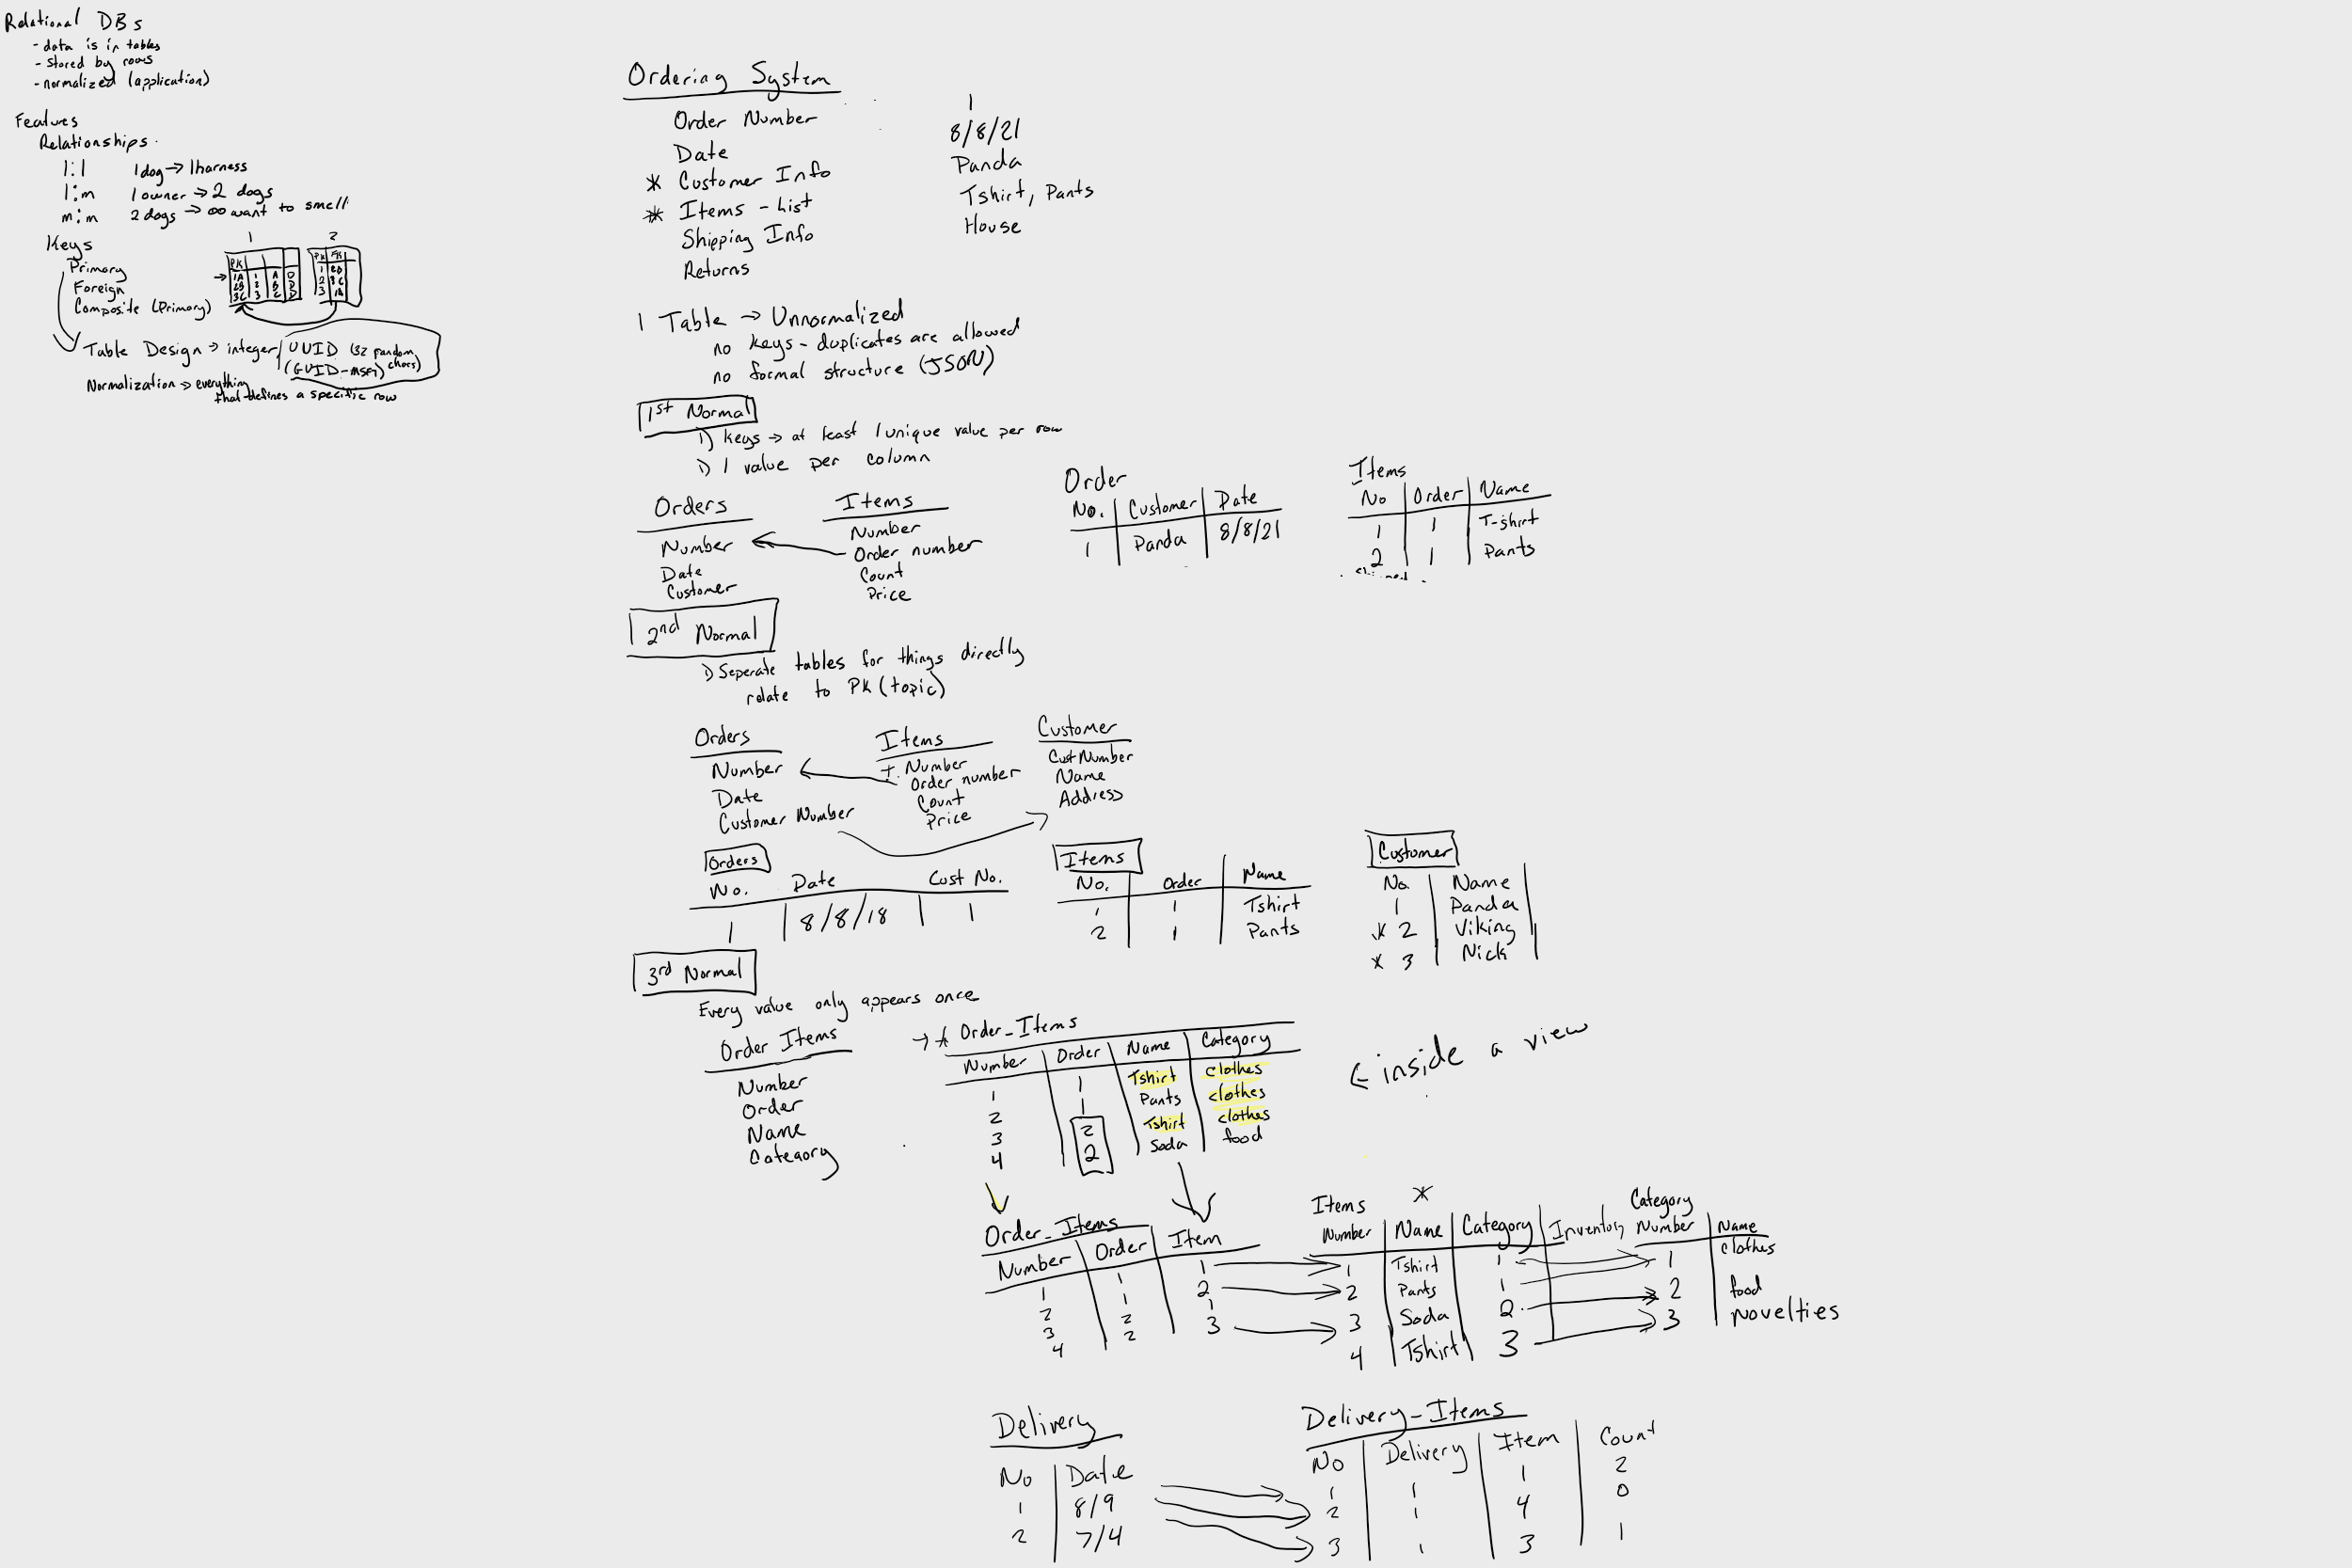 Relational DBs
- data is in tables
- stored by rows
- normalized (application)
Features
Relationships
1:1 1 dog → 1 harness
1:m 1 owner → 2 dogs
m:m 2 dogs → ∞ want to smell
Keys
Primary
Foreign
Composite (Primary)
1 2
PK
1A 1 A D
2B 2 B D
3C 3 C D
PK FK
1 2B
2 3C
3 1A
Table Design → integer/UUID (32 random chars)
(GUID-MSFT)
Normalization → everything
that defines a specific row
Ordering System
Order Number 1
Date 8/8/21
* Customer Info Panda
* Items - List Tshirt, Pants
Shipping Info House
Returns
1 Table → Unnormalized
no keys - duplicates are allowed
no formal structure (JSON)
1st Normal
1) Keys → at least 1 unique value per row
1) 1 value per column
Orders
Number
Date
Customer
Items
Number
Order number
Count
Price
Order
No. Customer Date
1 Panda 8/8/21
Items
No Order Name
1 1 T-shirt
2 1 Pants
2nd Normal
1) Seperate tables for things directly
relate to PK (topic)
Orders
Number
Date
Customer Number
Items
Number
Order number
Count
Price
Customer
Cust Number
Name
Address
Orders
No. Date Cust No.
1 8/8/18 1
Items
No. Order Name
1 1 Tshirt
2 1 Pants
Customer
No. Name
1 Panda
* 2 Viking
* 3 Nick
3rd Normal
Every value only appears once
Order Items
Number
Order
Name
Category
→ * Order_Items
Number Order Name Category
1 1 Tshirt clothes
2 1 Pants clothes
3 2 Tshirt clothes
4 2 Soda food
← inside a view
Order_Items
Number Order Item
1 1 1
2 1 2
3 2 1
4 2 3
Items *
Number Name Category Inventory
1 Tshirt 1
2 Pants 1
3 Soda 2
4 Tshirt 3
Category
Number Name
1 clothes
2 food
3 Novelties
Delivery
No Date
1 8/9
2 7/4
Delivery_Items
No Delivery Item Count
1 1 1 2
2 1 4 0
3 1 3 1